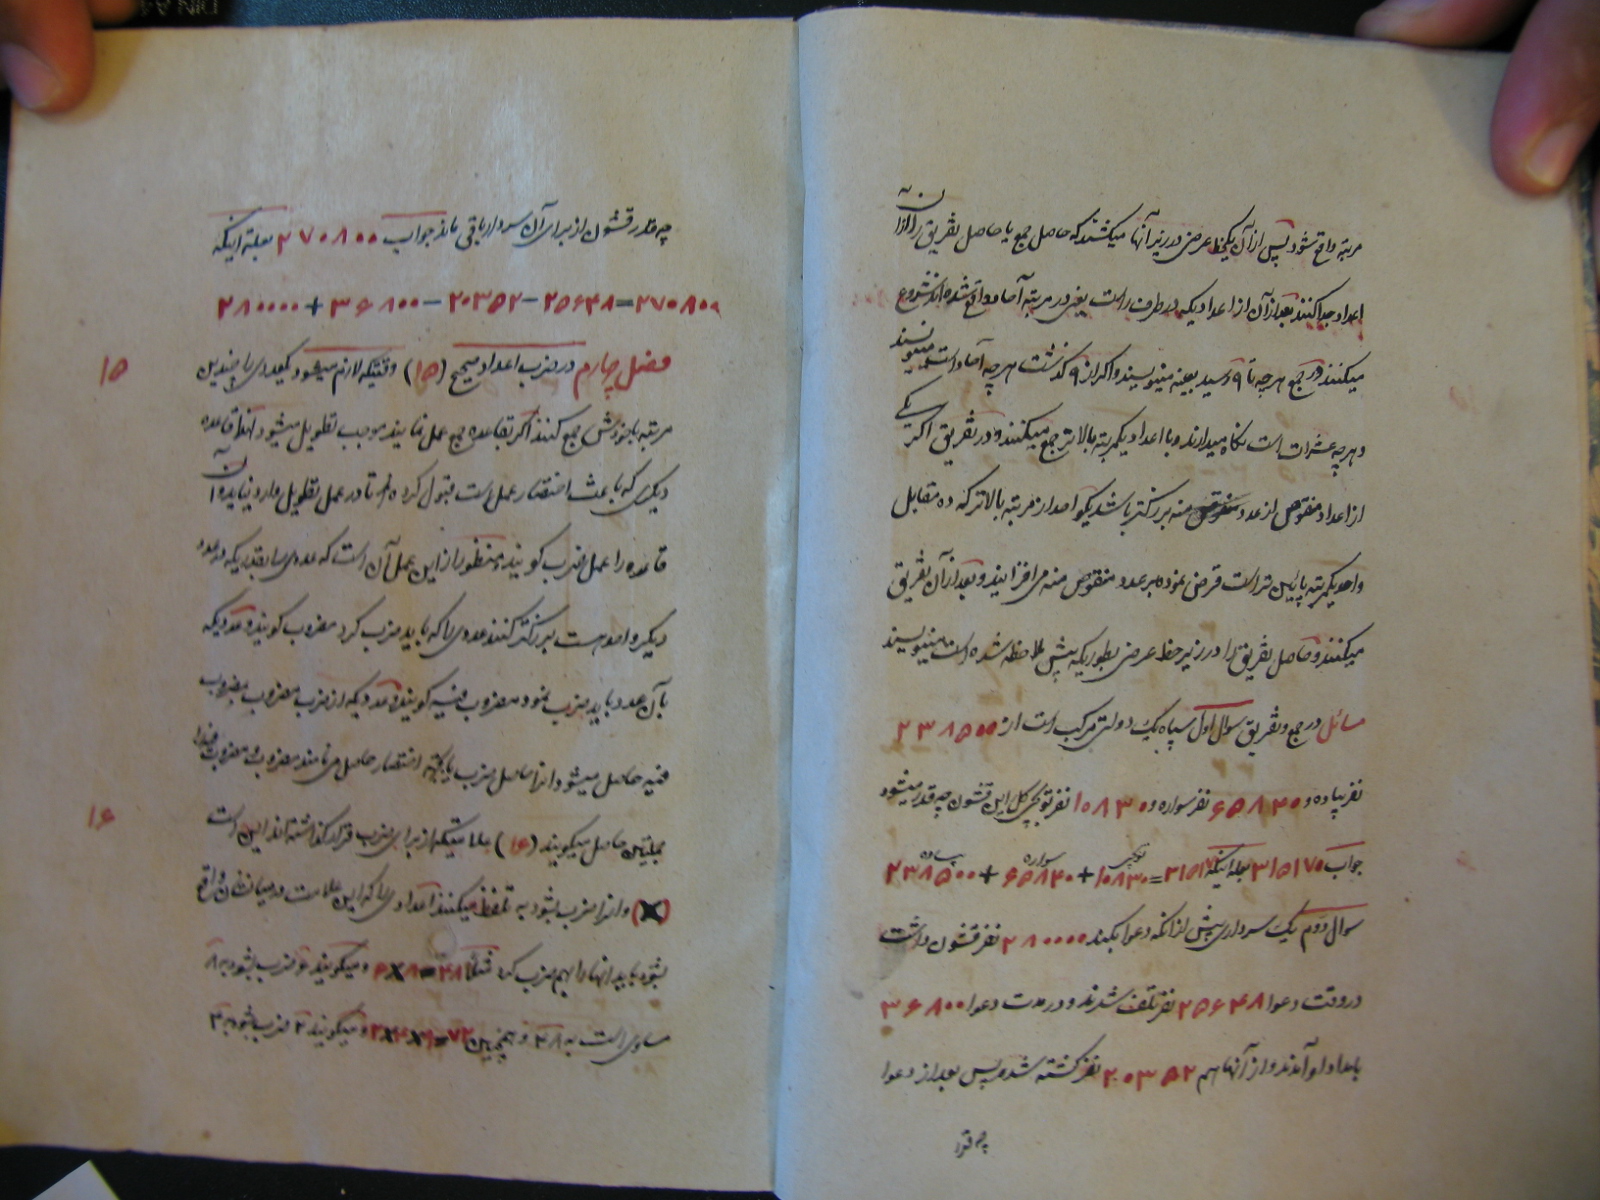 مرتبه واقع شود پس از آن یکخط عرضی در زیر آنها میکشند که حاصل جمع یا حاصل تفریق را از آن
اعداد جدا کنند بعد از آن از اعدادیکه در طرف راست یعنی در مرتبه آحاد واقع شده‌اند شروع
میکنند و در جمع هر چه تا ۹ رسید بعینه مینویسند و اکر از ۹ کذشت هر چه آحاد است مینویسند
و هر چه عشرات است نکاه میدارند و با اعداد یکمرتبه بالاتر جمع میکنند و در تفریق اکر یکی
از اعداد منقوص از عدد منقوص منه بزرکتر باشد یکواحد از مرتبه بالاتر که ده مقابل
واحد یکمرتبه پائین تر است قرض نموده بر عدد منقوص منه می افزایند و بعد از آن تفریق
میکنند و حاصل تفریق را در زیر خط عرضی بطوریکه پیش ملاحظه شده است مینویسند
مسائل در جمع و تفریق سوال اول سپاه یک دولتی مرکب است از ۲۳۸۵۰۰
نفر پیاده و ۶۵۸۴۰ نفر سواره و ۱۰۸۳۰ نفر توپچی کل این قشون چه قدر میشود
جواب ۳۱۵۱۷۰ بعلة اینکه ۳۱۵۱۷۰=۱۰۸۳۰+۶۵۸۴۰+۲۳۸۵۰۰
توپچی سواره پیاده
سوال دوم یک سرداری پیش از آنکه دعوا بکند ۲۸۰۰۰۰ نفر قشون داشت
در وقت دعوا ۲۵۶۴۸ نفر تلف شدند و در مدت دعوا ۳۶۸۰۰
بامداد او آمدند و از آنها هم ۲۰۳۵۲ نفر کشته شد پس بعد از دعوا
چه قدر
چه قدر قشون از برای آن سردار باقی ماند جواب ۲۷۰۸۰۰ بعلة اینکه
۲۸۰۰۰۰+۳۶۸۰۰-۲۰۳۵۲-۲۵۶۴۸=۲۷۰۸۰۰
۱۵
فصل چهارم در ضرب اعداد صحیح (۱۵) وقتیکه لازم میشود یکعددی را چندین
مرتبه با خودش جمع کنند اکر بقاعده جمع عمل نمایند موجب تطویل میشود لهذا قاعده
دیکری که باعث اختصار عمل است قبول کرده‌اند تا در عمل تطویل وارد نیاید و آن
قاعده را عمل ضرب کویند و منظور از این عمل آن است که عددی را بقدریکه در عدد
دیکر واحد هست بزرکتر کنند عددی را که باید ضرب کرد مضروب کویند و عددیکه
با آن عدد باید ضرب نمود مضروب فیه کویند و عددیکه از ضرب مضروب بمضروب
فیه حاصل میشود آنرا حاصل ضرب یا بجهة اختصار حاصل می نامند مضروب و مضروب فیه را
۱۶
بجملتین حاصل میکویند (۱۶) علامتیکه از برای ضرب قرار کذاشته‌اند این است
(×) و آنرا ضرب بشود به تلفظ میکنند اعدادی را که این علامت در میانشان واقع
بشود باید آنها را بهم ضرب کرد مثلا ۶×۸=۴۸ و میکویند ۶ ضرب بشود به ۸
مساوی است به ۴۸ و همچنین ۷۲= و میکویند ۲ ضرب بشود به ۴